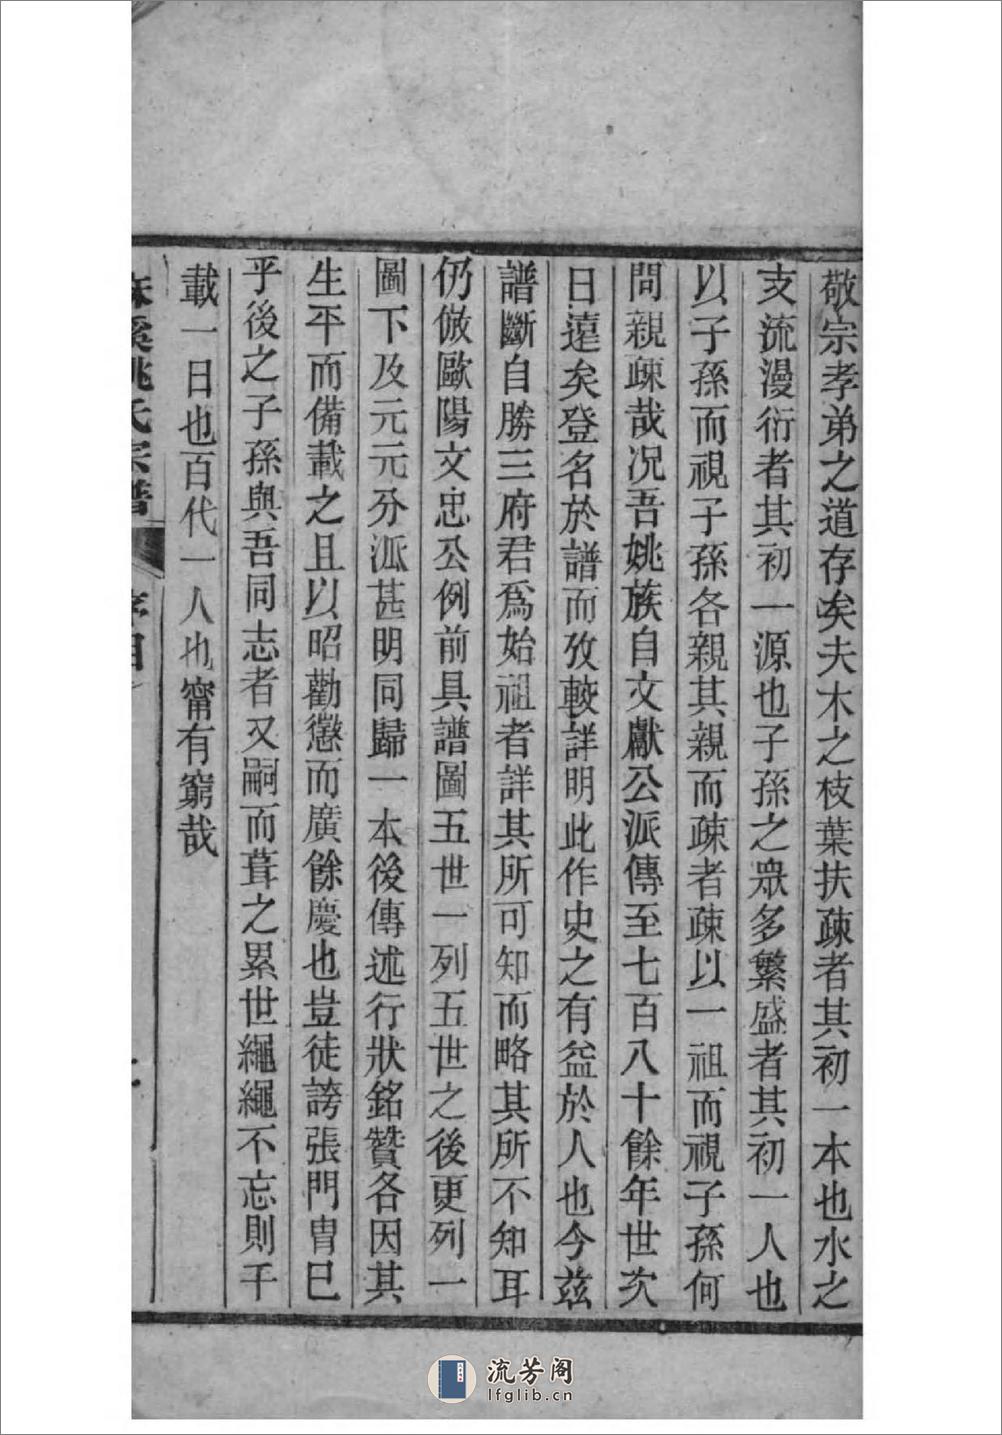 敬宗孝弟之道存矣夫木之枝葉扶疎者其初一本也水之
支流漫衍者其初一源也子孫之眾多繁盛者其初一人也
以子孫而視子孫各親其親而疎者疎以一祖而視子孫何
問親疎哉况吾姚族自文獻公派傳至七百八十餘年世次
日遠矣登名於譜而攷較詳明此作史之有益於人也今茲
譜斷自勝三府君爲始祖者詳其所可知而略其所不知耳
仍倣歐陽文忠公例前具譜圖五世一列五世之後更列一
圖下及元元分派甚明同歸一本後傳述行狀銘贊各因其
生平而備載之且以昭勸懲而廣餘慶也豈徒誇張門冑巳
乎後之子孫與吾同志者又嗣而葺之累世繩繩不忘則千
載一日也百代一人也甯有窮哉
溪姚氏宗譜
流芳阁
lfglib.cn